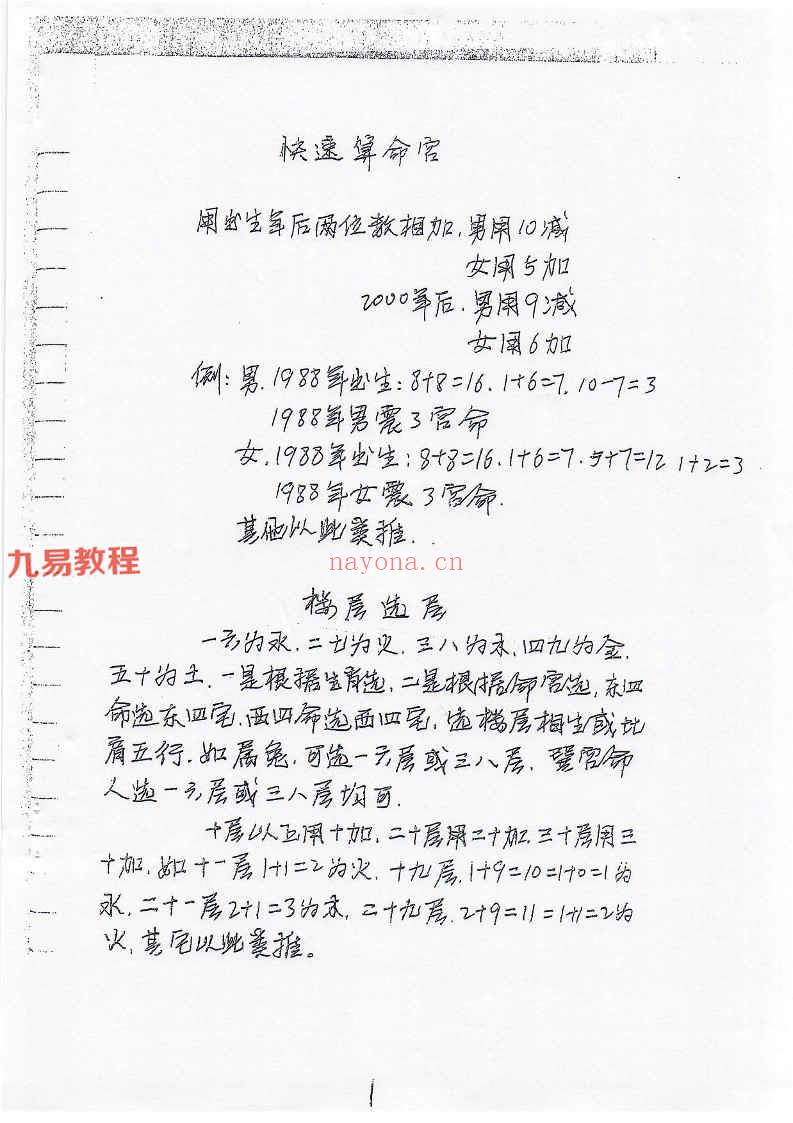 快速算命宫
用出生年后两位数相加,男用10减
女用5加
2000年后.男用9减
女用6加
例:男.1988年出生:8+8=16.1+6=7.10-7=3
1988年男震3宫命
女.1988年出生:8+8=16.1+6=7.5+7=12 1+2=3.
1988年女震3宫命.
其他以此类推..
九易教程
nayona.cn
楼层选层
一六为水.二七为火.三八为木.四九为金.
五十为土.一是根据生肖选,二是根据命宫选,东四
命选东四宅,西四命选西四宅,选楼层相生或比
肩五行.如属兔,可选一六层或三八层.震宫命
人选一六层或三八层均可.
十层以上用十加,二十层用二十加.三十层用三
十加,如十一层1+1=2为火.十九层.1+9=10=1+0=1为
水,二十一层2+1=3为木,二十九层.2+9=11=1+1=2为
火,其它以此类推。
1